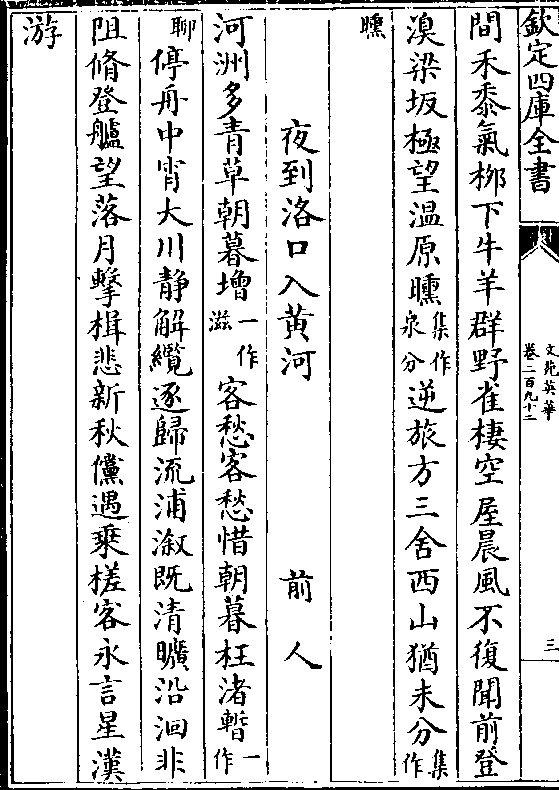 欽定四庫全書
文苑英華
卷二百九十二
三
間禾黍氣栁下牛羊群野雀棲空屋晨風不復聞前登
溴梁坂極望温原曛集作泉分逆旅方三舍西山猶未分集作
曛
夜到洛口入黄河 前人
河洲多青草朝暮增一作滋客愁客愁惜朝暮枉渚暫一作
聊停舟中宵大川静解纜逐歸流浦溆既清曠沿洄非
阻脩登艫望落月擊楫悲新秋儻遇乗槎客永言星漢
游